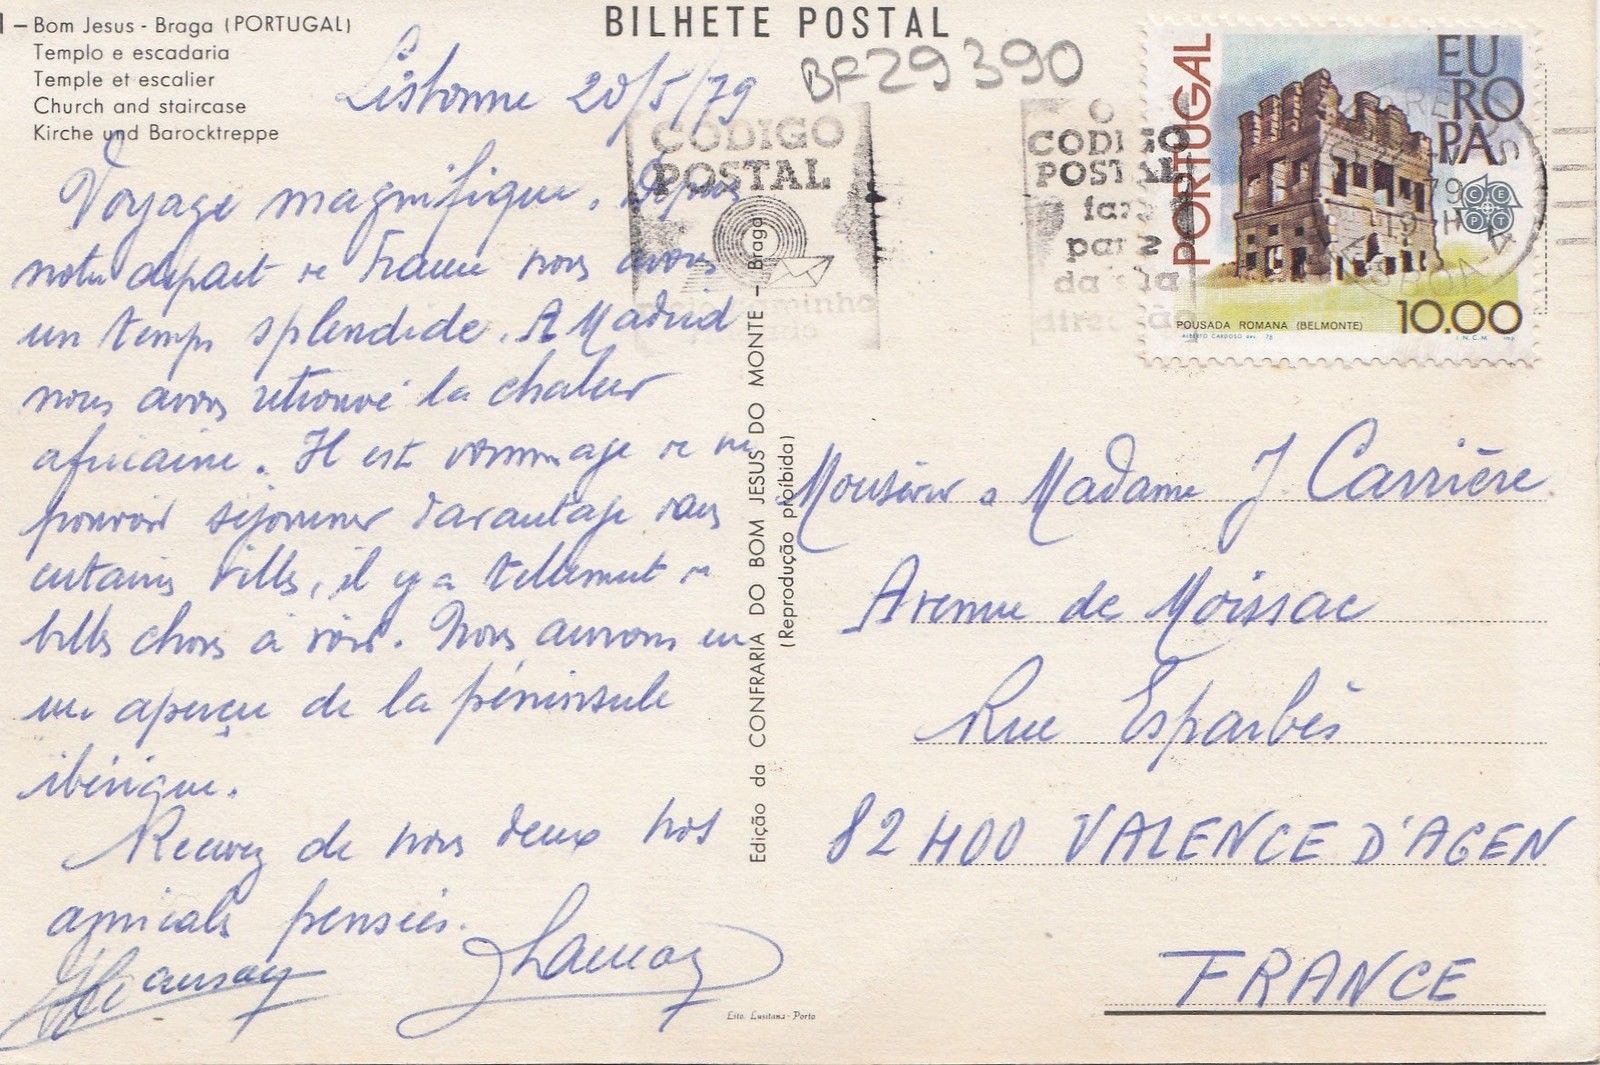 1 — Bom Jesus - Braga (PORTUGAL)
Templo e escadaria
Temple et escalier
Church and staircase
Kirche und Barocktreppe
BILHETE POSTAL
BF29390
Lisbonne 20/5/79
Voyage magnifique. Depuis
notre départ de France nous avons
un temps splendide. A Madrid
nous avons retrouvé la chaleur
africaine. Il est dommage de ne
pouvoir séjourner davantage dans
certaines villes, il y a tellement de
belles choses à voir. Nous aurons eu
un aperçu de la péninsule
ibérique.
Recevez de nous deux nos
amicales pensées.
Edição da CONFRARIA DO BOM JESUS DO MONTE — Braga
(Reprodução proibida)
Lito. Lusitana - Porto
CÓDIGO
POSTAL
meio caminho
andado
O
CODIGO
POSTAL
faz
parte
da sua
direcção
PORTUGAL
EUROPA
CEPT
POUSADA ROMANA (BELMONTE)
10.00
ALBERTO CARDOSO des. 78
I.N.C.M. imp.
CORREIOS
79
19 H
LISBOA
Monsieur & Madame J. Carrière
Avenue de Moissac
Rue Esparbès
82400 VALENCE D'AGEN
FRANCE